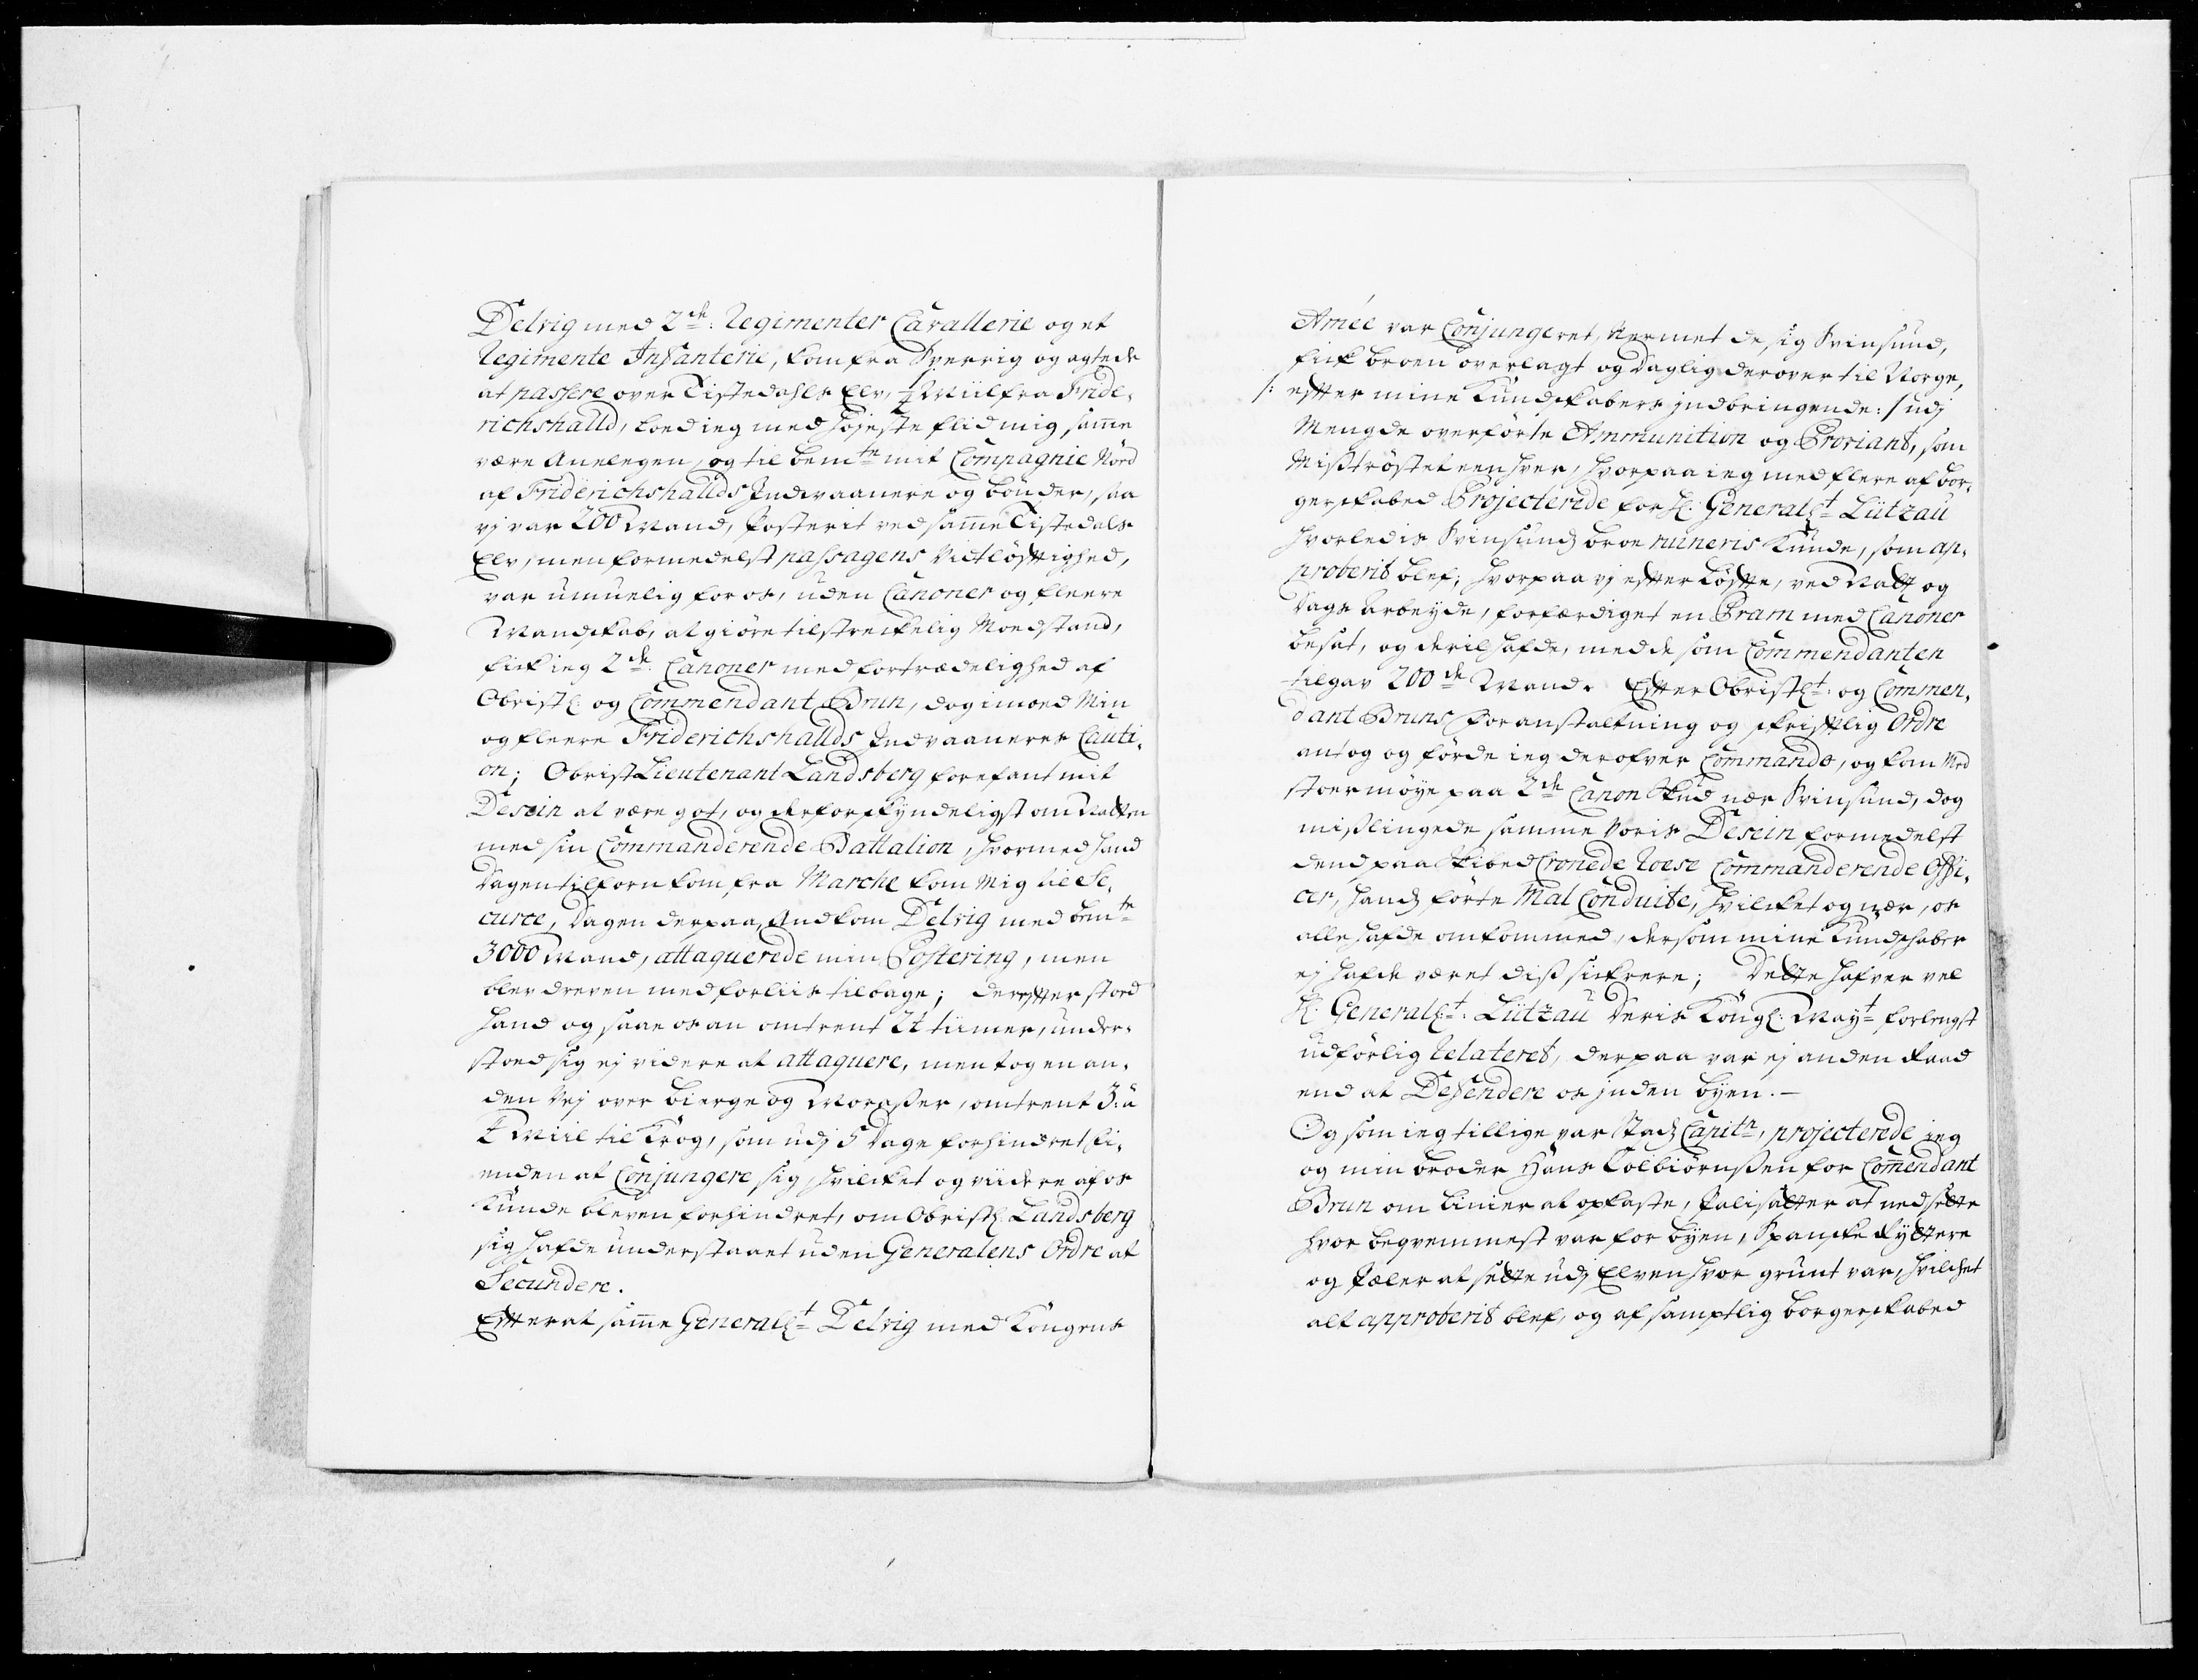 Delvig med 2de: Regimenter Cavallerie og et
Regimente Infanterie, kom fra Sverrig og agtede
at passere over Tistedahls Elv, ½ Miil fra Fride-
richshalld, loed ieg med højeste flid mig samme
være Anelegen, og til bemte mit Compagnie
af Friderichshallds Indvaanere og bønder, saa
vj var 200 Mand, Posterit ved samme Tistedals
Elv, men formedelst passagens Vitløftighed,
var umuelig for os, uden Canoner og fleere
Mandskab, at giøre tilstreckelig Moedstand,
fick ieg 2de: Canoner med fortrædelighed af
Obristl: og Commendant Brun, dog imoed Min
og fleere Friderichshallds Indvaaneres Cauti-
on; Obrist Lieutenant Landsberg forefant mit
Desein at være got, og derfor skyndeligst om Natten
med sin Commanderende Battalion, hvormed hand
Dagen tilforn kom fra Marche kom Mig til Se-
curce, Dagen derpaa, Andkom Delvig med bemte
3000 Mand, attaquerede min Postering, men
blev dreven med forliis tilbage; derefter stoed
hand og saae os an omtrent 24 tiimer, under-
stoed sig ej videre at attaquere, men tog en an-
den Vej over bierge og Moratzer, omtrent 3: a
4 Miil til Krog, som udj 5 Dage forhindret fi-
enden at Conjungere sig, hvilcket og viidere af os
kunde bleven forhindret, om Obristl: Landsberg
sig hafde understaaet uden Generalens Ordre at
Secundere.
Efter at samme Generallt Delvig med Kongens
Armée var Conjungeret, Nermet de sig Svinsund,
fick broen overlagt og Daglig derover til Norge,
/: efter mine Kundskabers jndbringende :/ udj
Mengde overførte Ammunition og Proviant, som
Mistrøstet een hver, hvorpaa ieg med flere af bor-
gerskabed Projecterede for H: Generallt Lützau
hvorledis Svinsunds broe ruineris kunde, som ap-
proberit blef; hvorpaa vj efter Løfte, ved Natt og
Dags Arbeyde, forfærdiget en Pram med Canoner
besat, og dertil hafde, med de som Commendanten
tilgav 200de Mand. Efter Obristlt: og Commen-
dant Bruns foranstaltning og skriftlig Ordre
antog og førde ieg derofver Commando, og kom Med
stoer møye paa 2de Canon Skud nær Svinsund, dog
mislingede samme Voris Desein formedelst
dend paa Skibed Cronede Roese Commanderende Offi-
cer, hands førte Mal Conduite, hvilcket og nær, os
alle hafde omkommed, dersom mine Kundschaber
ej hafde været dis sickrere; Dette hafver vel
H: Generallt: Lützau Deris Kongl: Mayt forlengst
udførlig Relateret, derpaa var ej anden Raad
end at Defendere os jnden byen. —
Og som ieg tillige var Stads Capitn, projecterede ieg
og min broder Hans Colbiørnsen for Commendant
Brun om linier at opkaste, Palisatter at nedsette
hvor beqvemmest var for byen, Spanske Ryttere
og Pæler at sette udj Elven hvor grunt var, hvilchet
alt approberit blef, og af samptlig borgerskabed